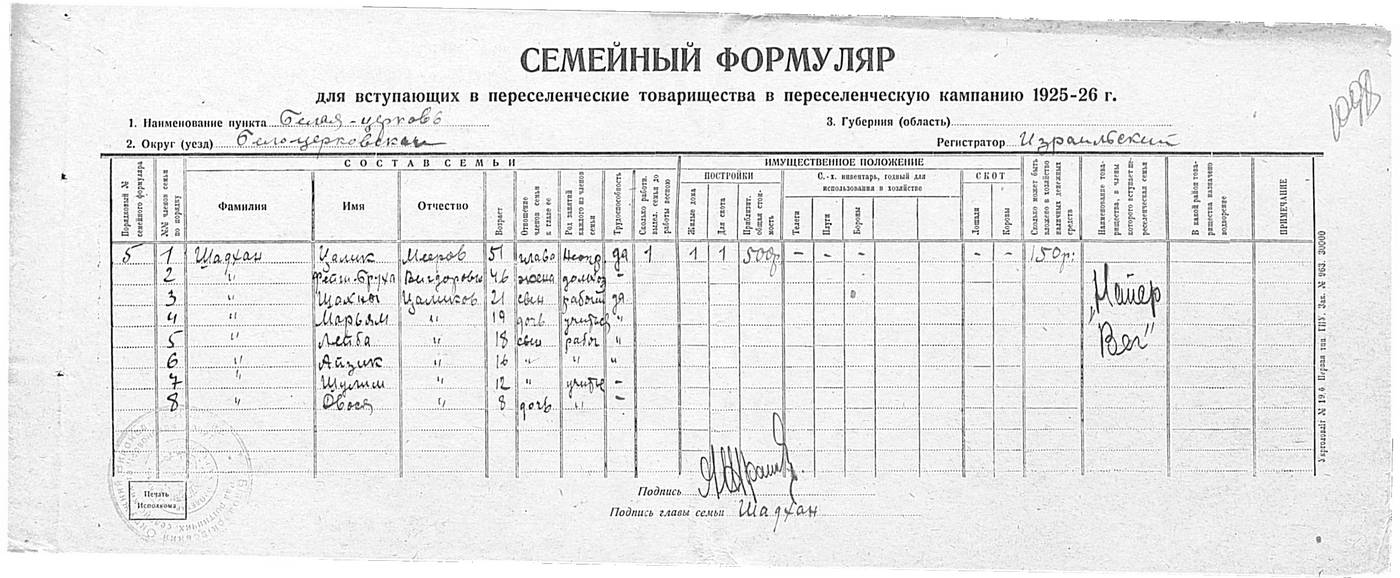 СЕМЕЙНЫЙ ФОРМУЛЯР
для вступающих в переселенческие товарищества в переселенческую кампанию 1925-26 г.
1098
1. Наименование пункта Белая-церковь
3. Губерния (область)
2. Округ (уезд) Белоцерковская
Регистратор Израильский
Порядковый № семейного формуляра
№№ членов семьи по порядку
СОСТАВ СЕМЬИ
Фамилия
Имя
Отчество
Возраст
Отношение членов семьи к главе ее
Род занятий каждого из членов семьи
Трудоспособность
Сколько работн. выдел. семья до работы весною
ИМУЩЕСТВЕННОЕ ПОЛОЖЕНИЕ
ПОСТРОЙКИ
Жилые дома
Для скота
Приблизит. общая стоимость
С.-х. инвентарь, годный для использования в хозяйстве
Телеги
Плуги
Бороны
СКОТ
Лошади
Коровы
Сколько может быть вложено в хозяйство наличных денежных средств
Наименование товарищества, в члены которого вступает переселенческая семья
В какой район товарищества назначено водворение
ПРИМЕЧАНИЕ
5 1 Шадхан Цалик Мееров 51 глава да 1 1 1 500р - - - - - 150р.
2 " Вигдоровы 46 жена домхоз -
3 " Шахны Цаликов 21 сын рабочий да
4 " Марьям " 19 дочь "
5 " Лейба " 18 сын рабоч "
6 " Айзик " 16 " " "
7 " Шулим " 12 " -
8 " " 8 дочь " -
„Найер
Вег"
Печать Исполкома
Подпись
Подпись главы семьи Шадхан
Укрголовліт № 19.6. Первая тип. ГПУ. Зак. № 963. 30000